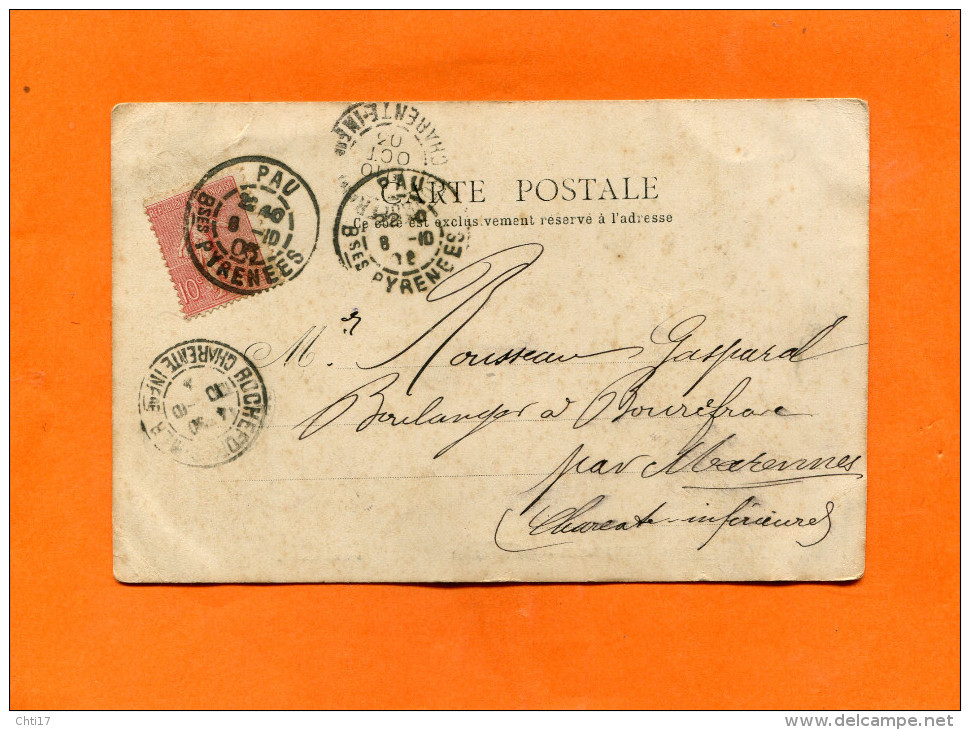 CHARENTE-INFRE
03
OCT
10
PAU
22 40
8 -10
05
BSES PYRENEES
PAU
8 -10
BSES PYRENEES
CARTE POSTALE
Ce côté est exclusivement réservé à l'adresse
10
Mr Rousseau Gaspard
Boulanger à Bourcefranc
par Marennes
(Charente-inférieure)
CHARENTE INFRE
Chti17
www.delcampe.net